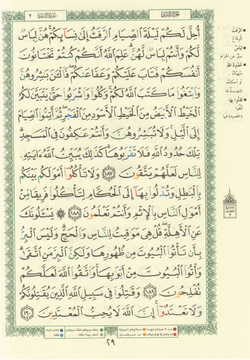 أُحِلَّ لَكُمْ لَيْلَةَ الصِّيَامِ الرَّفَثُ إِلَىٰ نِسَائِكُمْ هُنَّ لِبَاسٌ
لَكُمْ وَأَنْتُمْ لِبَاسٌ لَهُنَّ عَلِمَ اللَّهُ أَنَّكُمْ كُنْتُمْ تَخْتَانُونَ
أَنْفُسَكُمْ فَتَابَ عَلَيْكُمْ وَعَفَا عَنْكُمْ فَالْآنَ بَاشِرُوهُنَّ
وَابْتَغُوا مَا كَتَبَ اللَّهُ لَكُمْ وَكُلُوا وَاشْرَبُوا حَتَّىٰ يَتَبَيَّنَ لَكُمُ
الْخَيْطُ الْأَبْيَضُ مِنَ الْخَيْطِ الْأَسْوَدِ مِنَ الْفَجْرِ ثُمَّ أَتِمُّوا الصِّيَامَ
إِلَى اللَّيْلِ وَلَا تُبَاشِرُوهُنَّ وَأَنْتُمْ عَاكِفُونَ فِي الْمَسَاجِدِ
تِلْكَ حُدُودُ اللَّهِ فَلَا تَقْرَبُوهَا كَذَٰلِكَ يُبَيِّنُ اللَّهُ آيَاتِهِ
لِلنَّاسِ لَعَلَّهُمْ يَتَّقُونَ ١٨٧ وَلَا تَأْكُلُوا أَمْوَالَكُمْ بَيْنَكُمْ
بِالْبَاطِلِ وَتُدْلُوا بِهَا إِلَى الْحُكَّامِ لِتَأْكُلُوا فَرِيقًا مِنْ
أَمْوَالِ النَّاسِ بِالْإِثْمِ وَأَنْتُمْ تَعْلَمُونَ ١٨٨ يَسْأَلُونَكَ
عَنِ الْأَهِلَّةِ قُلْ هِيَ مَوَاقِيتُ لِلنَّاسِ وَالْحَجِّ وَلَيْسَ الْبِرُّ
بِأَنْ تَأْتُوا الْبُيُوتَ مِنْ ظُهُورِهَا وَلَٰكِنَّ الْبِرَّ مَنِ اتَّقَىٰ
وَأْتُوا الْبُيُوتَ مِنْ أَبْوَابِهَا وَاتَّقُوا اللَّهَ لَعَلَّكُمْ
تُفْلِحُونَ ١٨٩ وَقَاتِلُوا فِي سَبِيلِ اللَّهِ الَّذِينَ يُقَاتِلُونَكُمْ
وَلَا تَعْتَدُوا إِنَّ اللَّهَ لَا يُحِبُّ الْمُعْتَدِينَ ١٩٠
٢٩